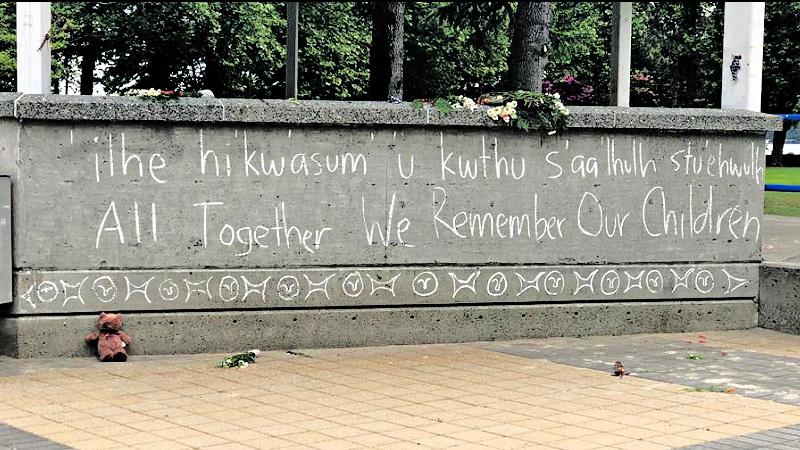 'ilhe hi'kw'asum' 'u kwthu s'aa'lhulh stu'ehwulh
All Together We Remember Our Children